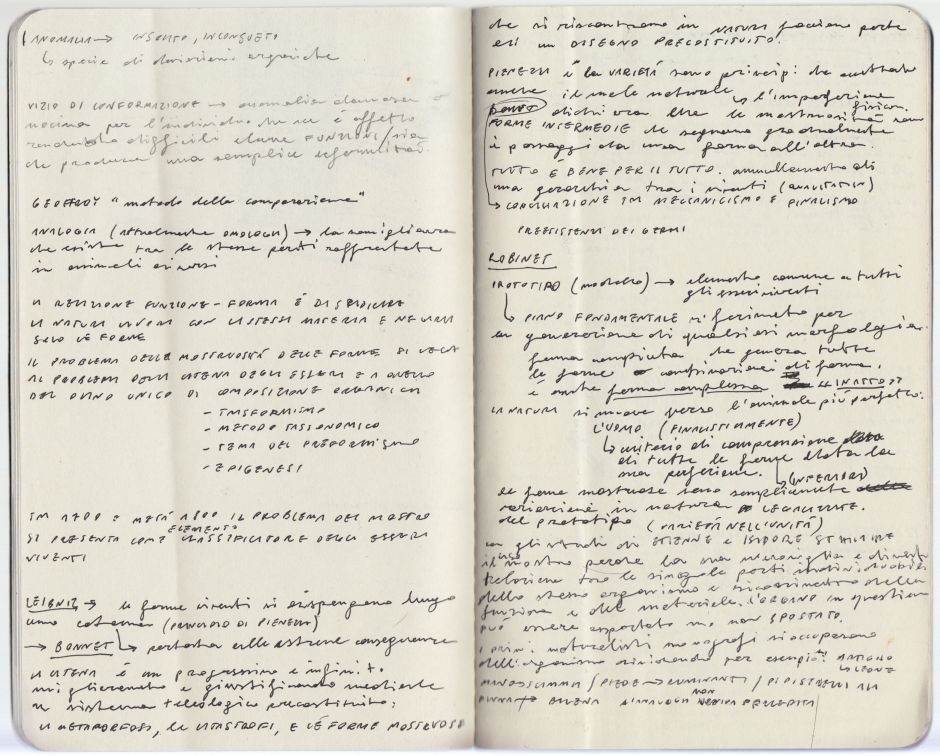 ANOMALIA → INSOLITO, INCONSUETO
↳ specie di deviazioni organiche
VIZIO DI CONFORMAZIONE → anomalia dannosa o
nociva per l'individuo che ne è affetto
rendendo difficili alcune FUNZIONI / sia
che produca una semplice deformità.
GEOFFROY "metodo della comparazione"
ANALOGIA (ATTUALMENTE OMOLOGIA) → la somiglianza
che esiste tra le stesse parti raffrontate
in animali diversi
LA RELAZIONE FUNZIONE - FORMA È DI
LA NATURA LAVORA CON LA STESSA MATERIA E NE VARIA
SOLO LE FORME
IL PROBLEMA DELLA MOSTRUOSITÀ DELLE FORME SI LEGA
AL PROBLEMA DELLA CATENA DEGLI ESSERI E A QUELLO
DEL PIANO UNICO DI COMPOSIZIONE ORGANICA
- TRASFORMISMO
- METODO TASSONOMICO
- TEMA DEL PREFORMISMO
- EPIGENESI
TRA 1700 E METÀ 1800 IL PROBLEMA DEL MOSTRO
SI PRESENTA COME ELEMENTO CLASSIFICATORE DEGLI ESSERI
VIVENTI
LEIBNIZ → le forme viventi si dispongono lungo
una catena (PRINCIPIO DI PIENEZZA)
→ BONNET ↳ portata alle estreme conseguenze
LA CATENA È un progressivo e infinito
miglioramento e giustificando mediante
un sistema teleologico precostituito:
LA METAMORFOSI, LE CATASTROFI, E LE FORME MOSTRUOSE
che si riscontrano in NATURA facciano parte
di un DISEGNO PRECOSTITUITO.
PIENEZZA e la VARIETÀ sono principi che
anche il male naturale ↳ l'imperfezione
BONNET dichiara che le mostruosità sono fisica.
FORME INTERMEDIE che segnano gradualmente
i passaggi da una forma all'altra.
TUTTO È BENE PER IL TUTTO. annullamento di
una gerarchia tra i viventi (QUALITATIVA)
→ CONCILIAZIONE TRA MECCANICISMO E FINALISMO
PREESISTENZA DEI GERMI
ROBINET
PROTOTIPO (modello) → elemento comune a tutti
gli esseri viventi
↳ PIANO FONDAMENTALE riferimento per
la generazione di qualsiasi morfologia.
forma compiuta che genera tutte
le forme combinazioni di forma.
è anche forma complessa INNATO
LA NATURA si muove verso l'animale più perfetto:
L'UOMO (FINALISTICAMENTE)
↳ criterio di comprensione
di tutte le forme data la
sua perfezione. (INFERIORI)
le forme mostruose sono semplicemente
variazione in natura LEGALIZZATE.
del prototipo (VARIETÀ NELL'UNITÀ)
con gli studi di ETIENNE e ISIDORE ST HILAIRE
il mostro perde la sua meraviglia e diventa
relazione tra le singole parti
dello stesso organismo e della
funzione e del materiale. L'ORGANO in questione
PUÒ essere asportato ma non SPOSTATO.
i primi naturalisti monografi si occupano
dell'organismo dividendo per esempio: ARTIGLIO
↳ LEONE
MANO SCIMMIA / PIEDE → RUMINANTI / PIPISTRELLI ALI
PINNA → BALENA